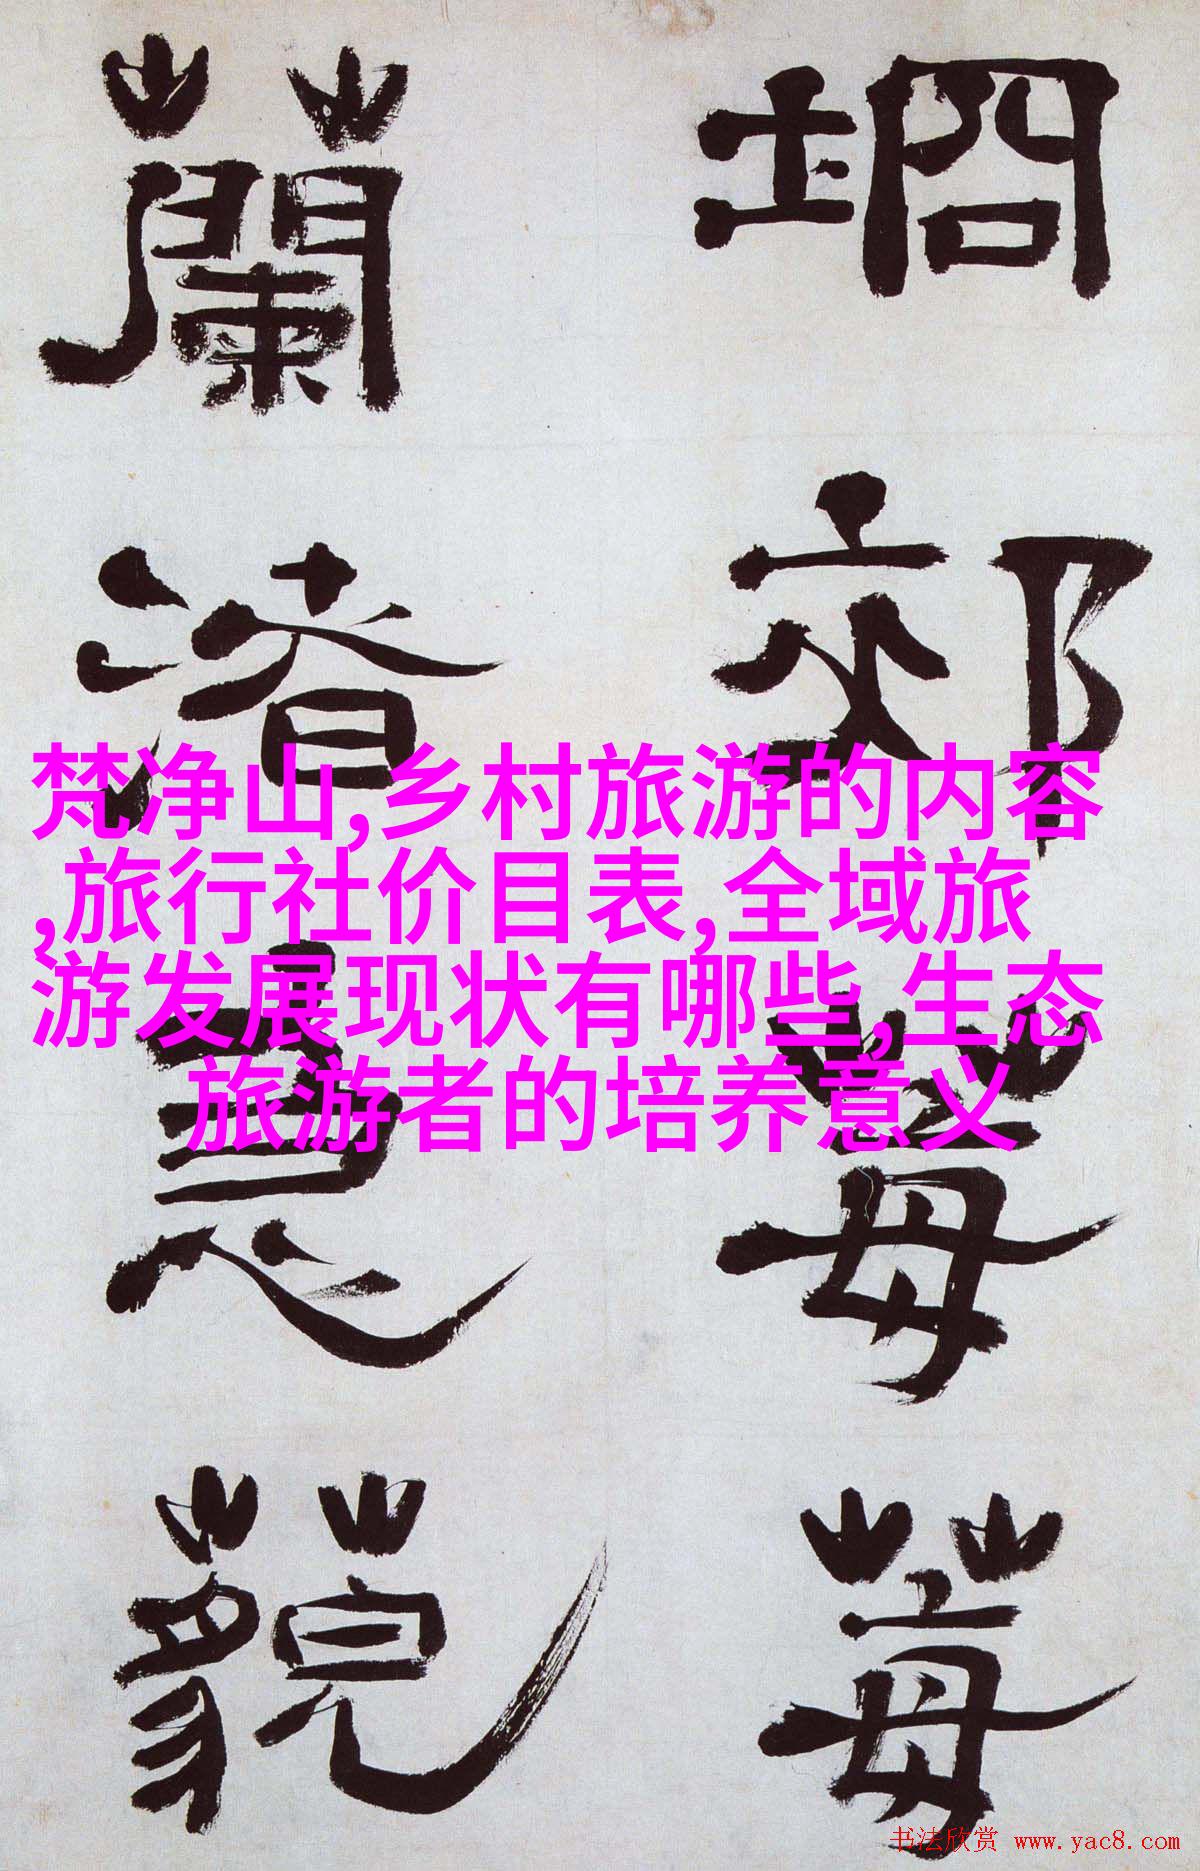 坰郊莓莓
蘭渚藐
梵净山,乡村旅游的内容
,旅行社价目表,全域旅
游发展现状有哪些,生态
旅游者的培养意义
书法欣赏 www.yac8.com